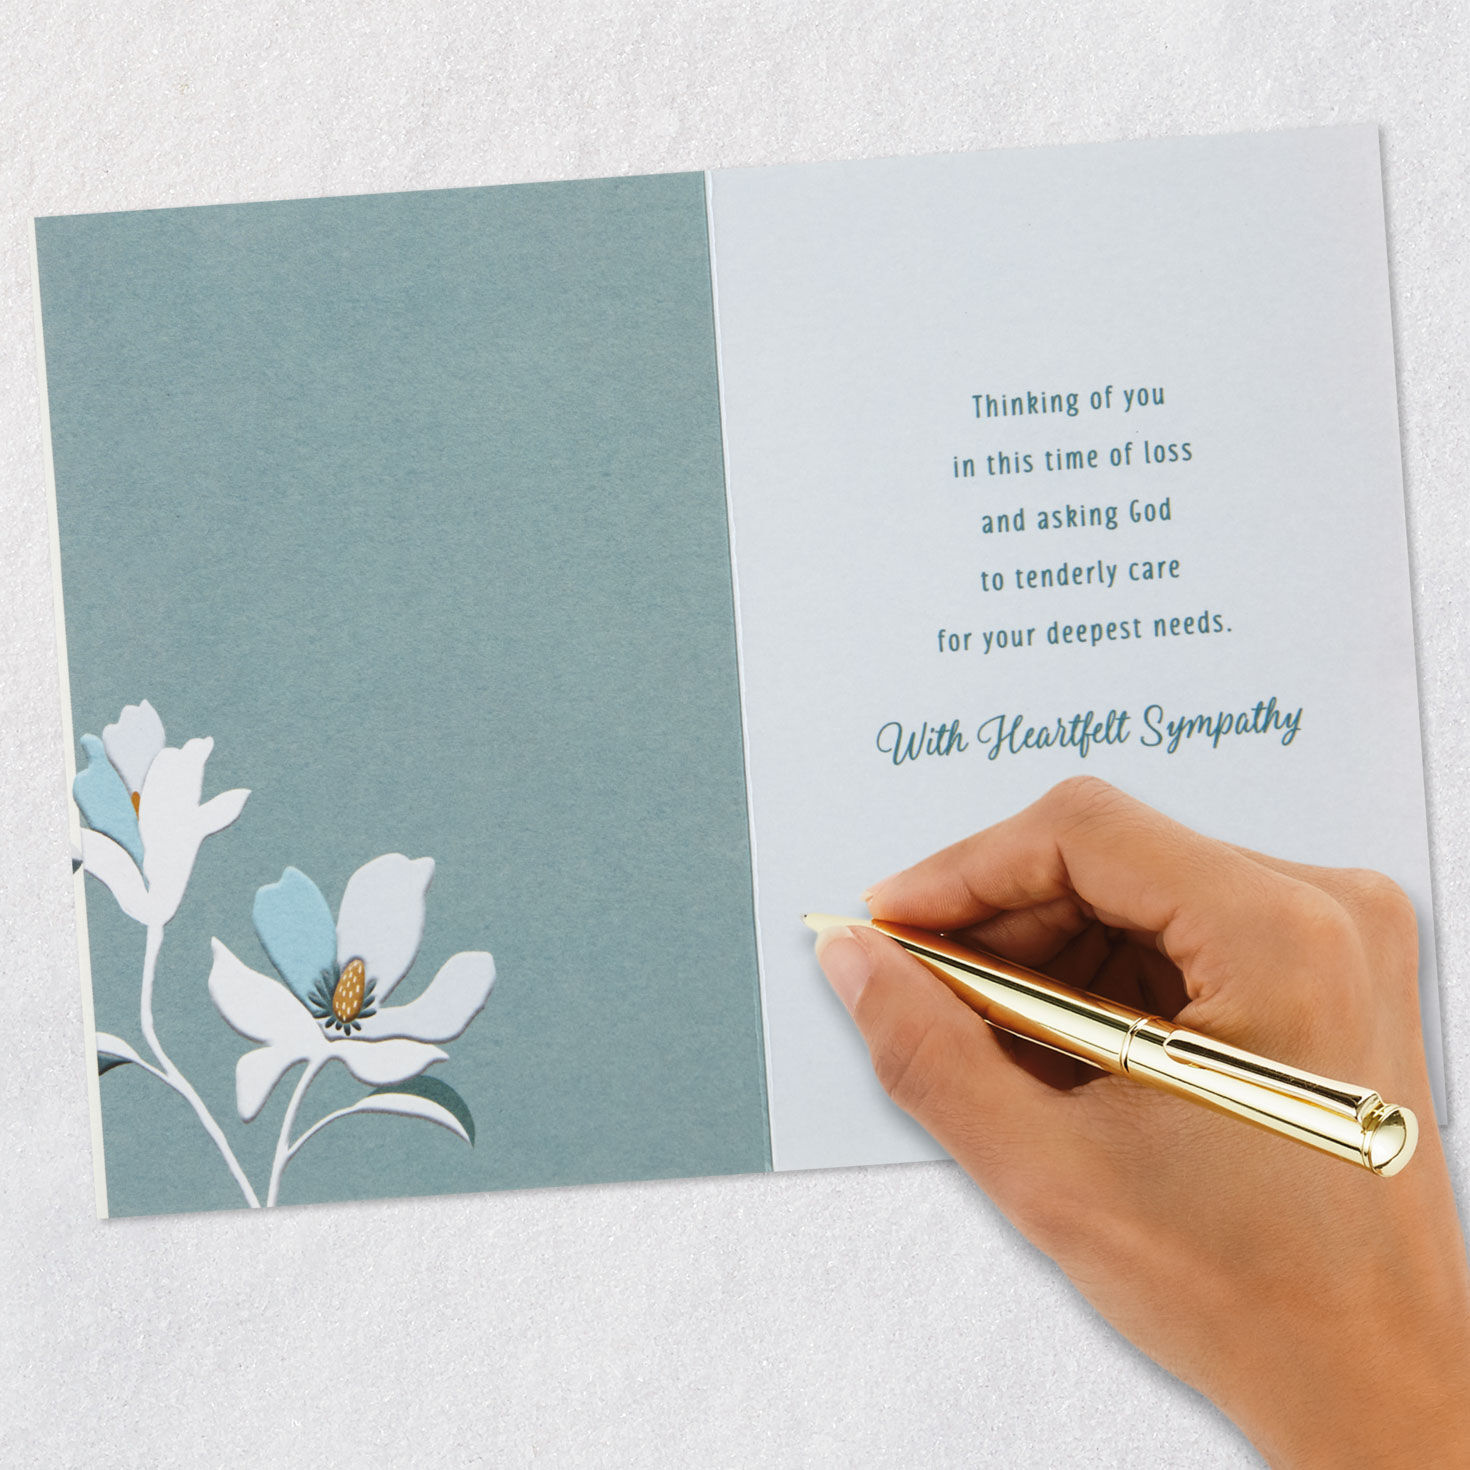 Thinking of you
in this time of loss
and asking God
to tenderly care
for your deepest needs.
With Heartfelt Sympathy